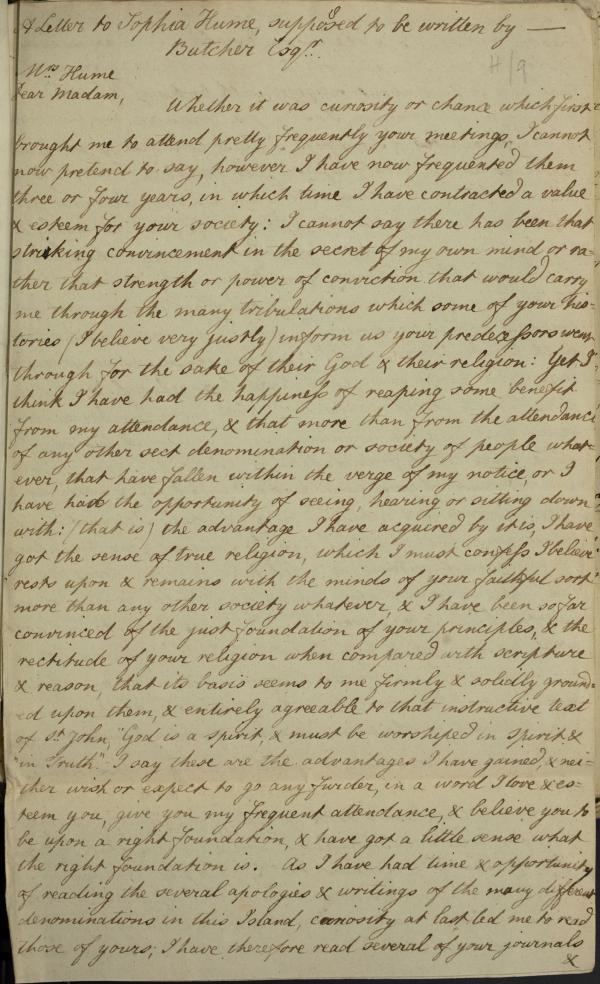 A Letter to Sophia Hume, supposed to be written by —
Butcher Esqr.
H/9
Mrs Hume
Dear Madam,
Whether it was curiosity or chance which first
brought me to attend pretty frequently your meetings, I cannot
now pretend to say, however I have now frequented them
three or four years, in which time I have contracted a value
& esteem for your society: I cannot say there has been that
striking convincement in the secret of my own mind or ra=
ther that strength or power of conviction that would carry
me through the many tribulations which some of your his=
tories (I believe very justly) inform us your predecessors went
through for the sake of their God & their religion: Yet I
think I have had the happiness of reaping some benefit
from my attendance, & that more than from the attendance
of any other sect denomination or society of people what=
ever, that have fallen within the verge of my notice, or I
have had the opportunity of seeing, hearing or sitting down
with: (that is) the advantage I have acquired by it is, I have
got the sense of true religion, which I must confess I believe
rests upon & remains with the minds of your faithful sort
more than any other society whatever, & I have been so far
convinced of the just foundation of your principles, & the
rectitude of your religion when compared with scripture
& reason, that its basis seems to me firmly & solidly ground=
ed upon them, & entirely agreeable to that instructive text
of St. John, "God is a spirit, & must be worshiped in spirit &
"in Truth" I say these are the advantages I have gained, & nei=
ther wish or expect to go any furder, in a word I love & es=
teem you, give you my frequent attendance, & believe you to
be upon a right foundation, & have got a little sense what
the right foundation is. As I have had time & opportunity
of reading the several apologies & writings of the many different
denominations in this Island, curiosity at last led me to read
those of yours; I have therefore read several of your journals
&